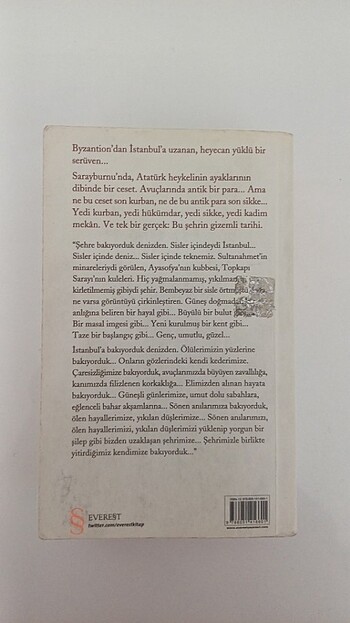 Byzantion'dan İstanbul'a uzanan, heyecan yüklü bir
serüven...
Sarayburnu'nda, Atatürk heykelinin ayaklarının
dibinde bir ceset. Avuçlarında antik bir para... Ama
ne bu ceset son kurban, ne de bu antik para son sikke...
Yedi kurban, yedi hükümdar, yedi sikke, yedi kadim
mekân. Ve tek bir gerçek: Bu şehrin gizemli tarihi.
"Şehre bakıyorduk denizden. Sisler içindeydi İstanbul...
Sisler içinde deniz... Sisler içinde teknemiz. Sultanahmet'in
minareleriydi görülen, Ayasofya'nın kubbesi, Topkapı
Sarayı'nın kuleleri. Hiç yağmalanmamış, yıkılmamış,
kirletilmemiş gibiydi şehir. Bembeyaz bir sis örtmüştü
ne varsa görüntüyü çirkinleştiren. Güneş doğmadan
anlığına beliren bir hayal gibi... Büyülü bir bulut gibi...
Bir masal imgesi gibi... Yeni kurulmuş bir kent gibi...
Taze bir başlangıç gibi... Genç, umutlu, güzel...
İstanbul'a bakıyorduk denizden. Ölülerimizin yüzlerine
bakıyorduk... Onların gözlerindeki kendi kederimize.
Çaresizliğimize bakıyorduk, avuçlarımızda büyüyen zavallılığa,
kanımızda filizlenen korkaklığa... Elimizden alınan hayata
bakıyorduk... Güneşli günlerimize, umut dolu sabahlara,
eğlenceli bahar akşamlarına... Sönen anılarımıza bakıyorduk,
ölen hayallerimize, yıkılan düşlerimize... Sönen anılarımızı,
ölen hayallerimizi, yıkılan düşlerimizi yüklenip yorgun bir
şilep gibi bizden uzaklaşan şehrimize... Şehrimizle birlikte
yitirdiğimiz kendimize bakıyorduk..."
EVEREST
twitter.com/everestkitap